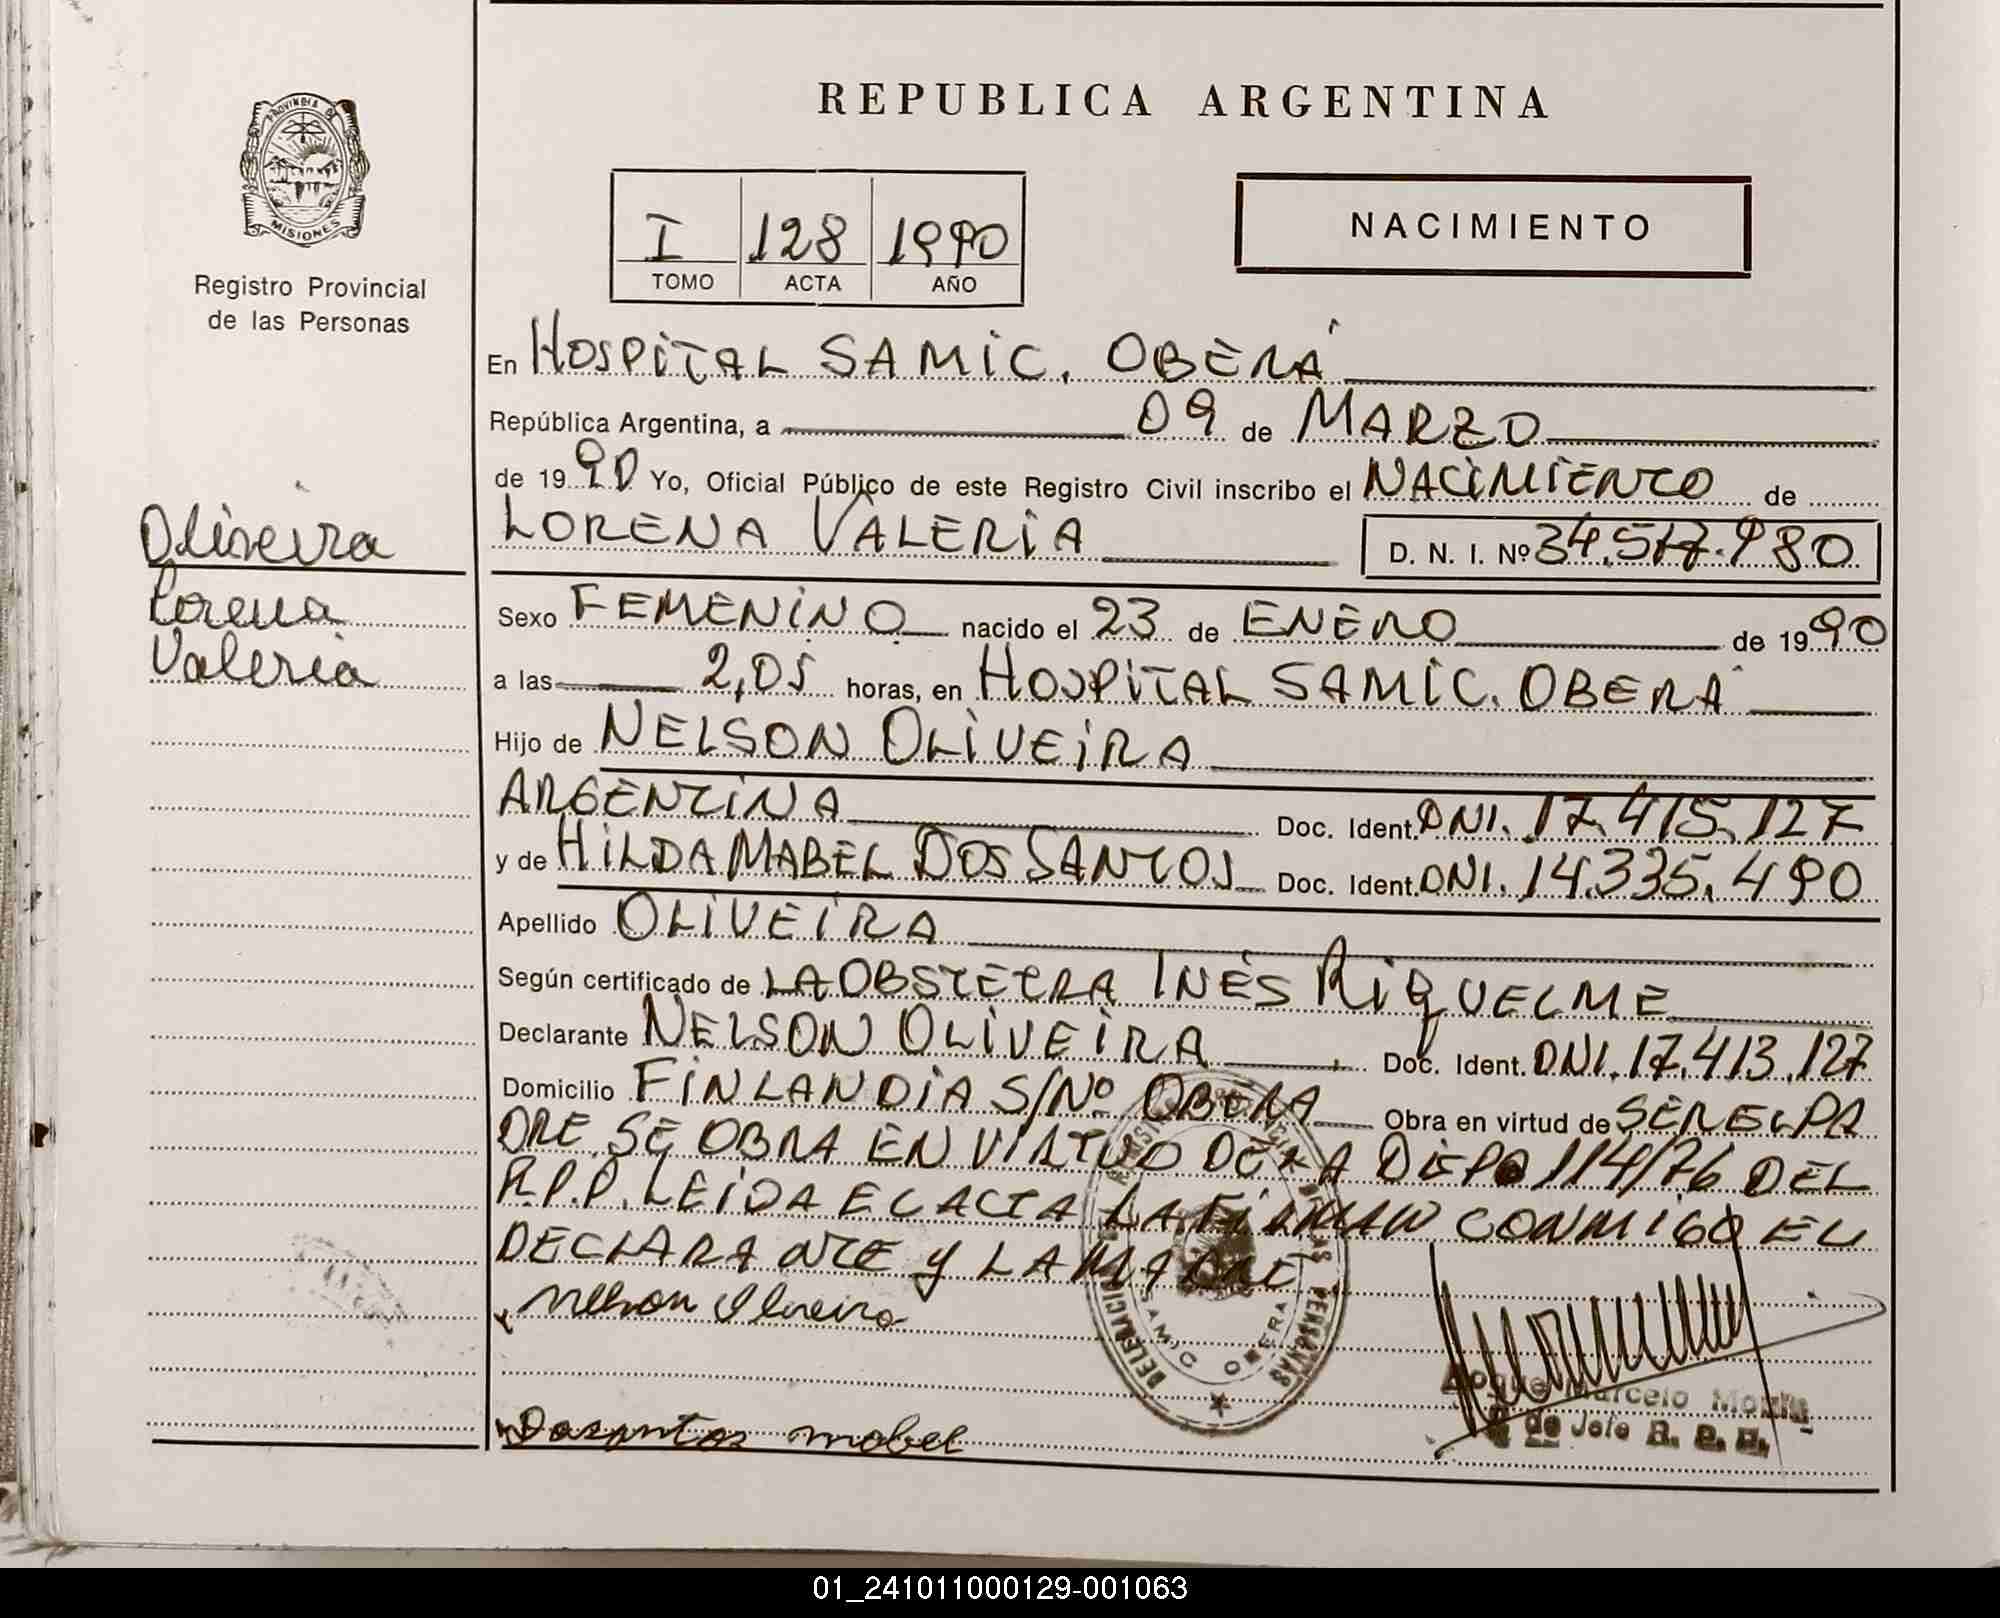 PROVINCIA DE
MISIONES
Registro Provincial
de las Personas
REPUBLICA ARGENTINA
I 128 1990
TOMO ACTA AÑO
NACIMIENTO
En HOSPITAL SAMIC. OBERÁ
República Argentina, a 09 de MARZO
de 1990 Yo, Oficial Público de este Registro Civil inscribo el NACIMIENTO de
LORENA VALERIA D. N. I. Nº 34.517.980
Oliveira
Lorena
Valeria
Sexo FEMENINO nacido el 23 de ENERO de 1990
a las 2,05 horas, en HOSPITAL SAMIC. OBERÁ
Hijo de NELSON OLIVEIRA
ARGENTINA Doc. Ident. DNI. 17.415.127
y de HILDA MABEL DOS SANTOS Doc. Ident. DNI. 14.335.490
Apellido OLIVEIRA
Según certificado de LA OBSTETRA INÉS RIQUELME
Declarante NELSON OLIVEIRA Doc. Ident. DNI. 17.413.127
Domicilio FINLANDIA S/Nº OBERA Obra en virtud de SER EL PA
DRE SE OBRA EN VIRTUD DE LA DISPO 114/76 DEL
R.P.P. LEIDA EL ACTA LA FIRMAN CONMIGO EL
DECLARANTE Y LA MADRE
Nelson Oliveira
DELEGACION
DE LAS PERSONAS
SAMIC OBERA
Marcelo
de Jefe R. P. P.
Dosantos mabel
01_241011000129-001063